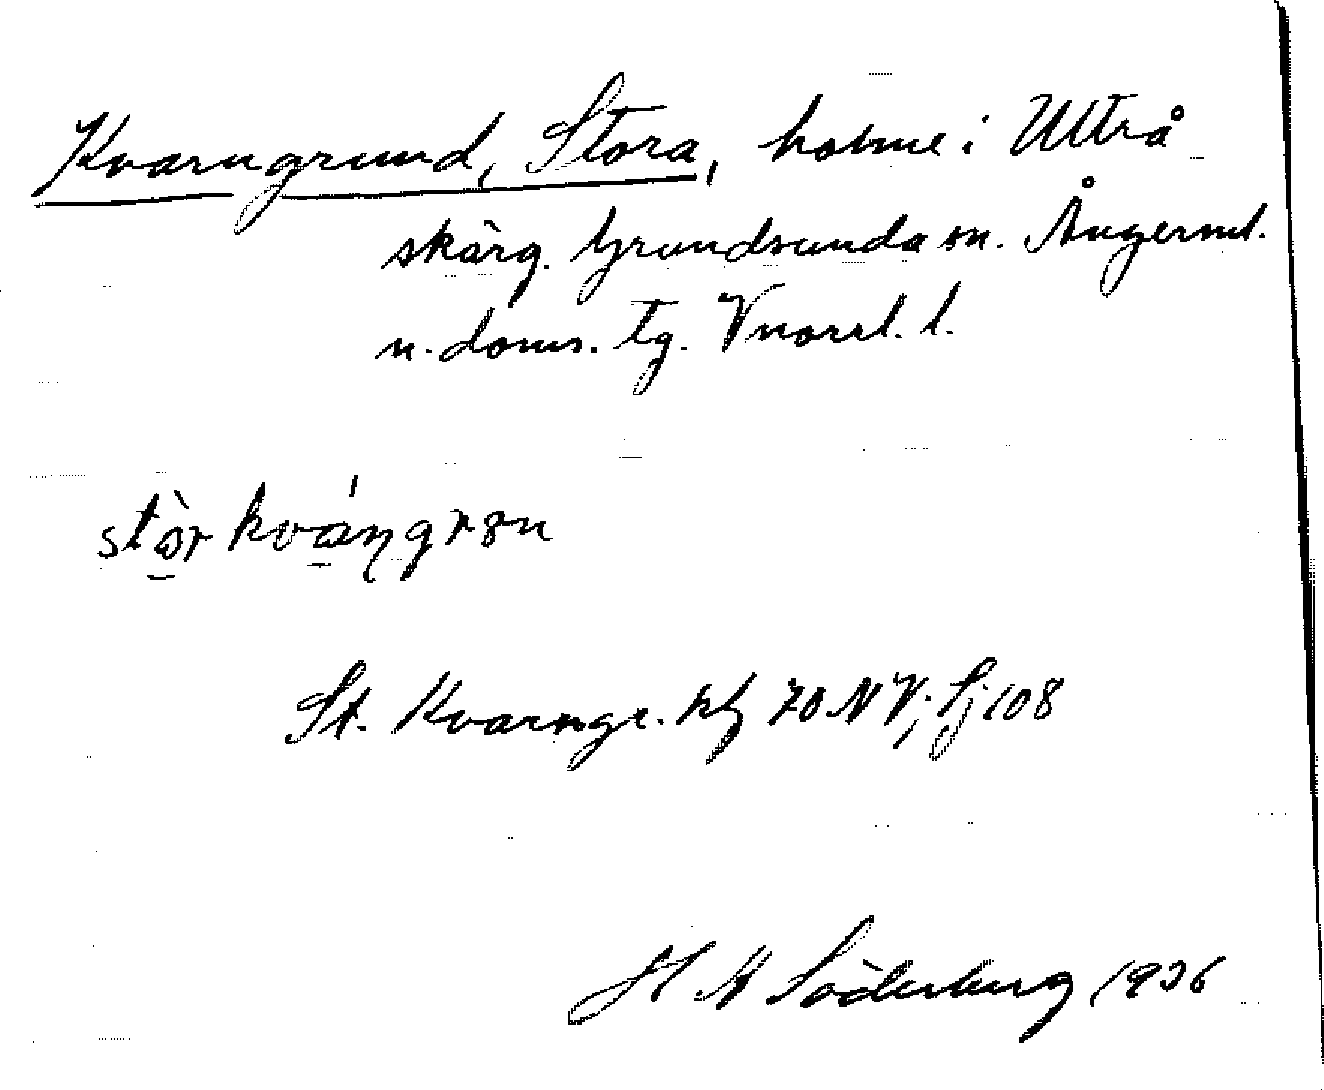 Kvarngrund, Stora, holme i Ultrå
skärg. Grundsunda sn. Ångerml.
n. doms. tg. Vnorrl. l.
stòr kváŋgrɞn
St. Kvarngr. kbl 70 NV; Sj 108
H M Söderberg 1936